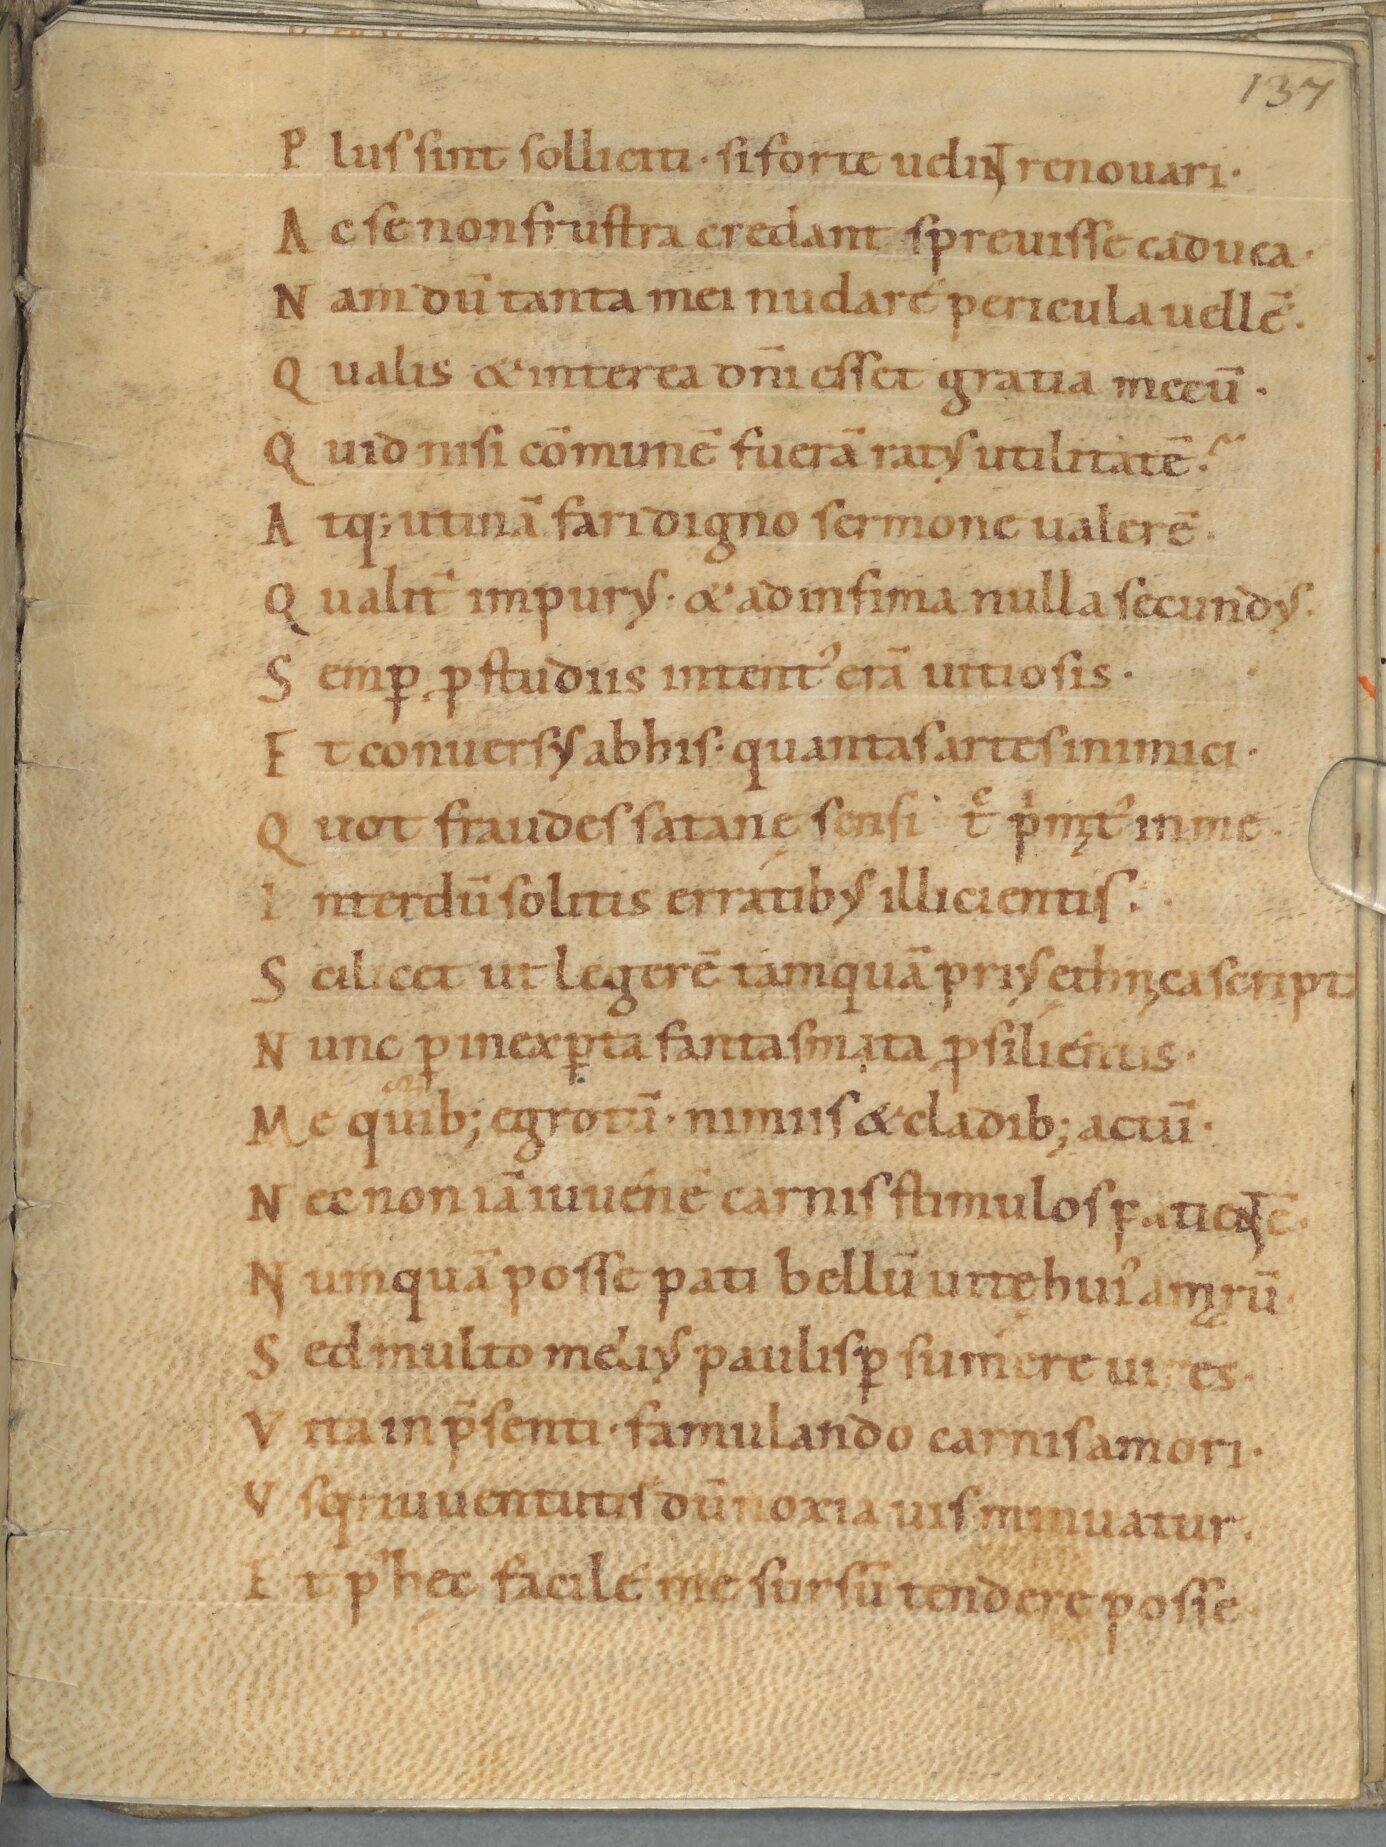 137
P lus sint solliciti · si forte uelint renouari ·
A c se non frustra credant spreuisse caduca ·
N am dū tanta mei nudare pericula uellē ·
Q ualis & interea dn̄i esset gratia mecū ·
Q uid nisi cōmunē fuerā ratus utilitatē ?
A tq; utinā fari digno sermone ualerē ·
Q ualit͛ impurus · & ad infima nulla secundus ·
S emꝑ ꝓ studiis intentꝰ erā uitiosis ·
E t conuersus ab his · quantas artes inimici ·
Q uot fraudes satanę sensi in me ·
I nterdū solitis erratibus illicientis ·
S cilicet ut legerē tamquā prius ethnica script
N unc ꝑ inexꝑta fantasmata ꝓsilientis ·
M e quib; egrotū · nimiis & cladib; actū ·
N ec non iā iuuenē carnis stimulos
N umquā posse pati bellū uitę huiꝰ amarū
S ed multo melius paulisꝑ sumere uires ·
V ita in p̄senti · famulando carnis amori ·
V sq; iuuentutis dū noxia uis minuatur ·
E t p͛ hęc facile me sursū tendere posse